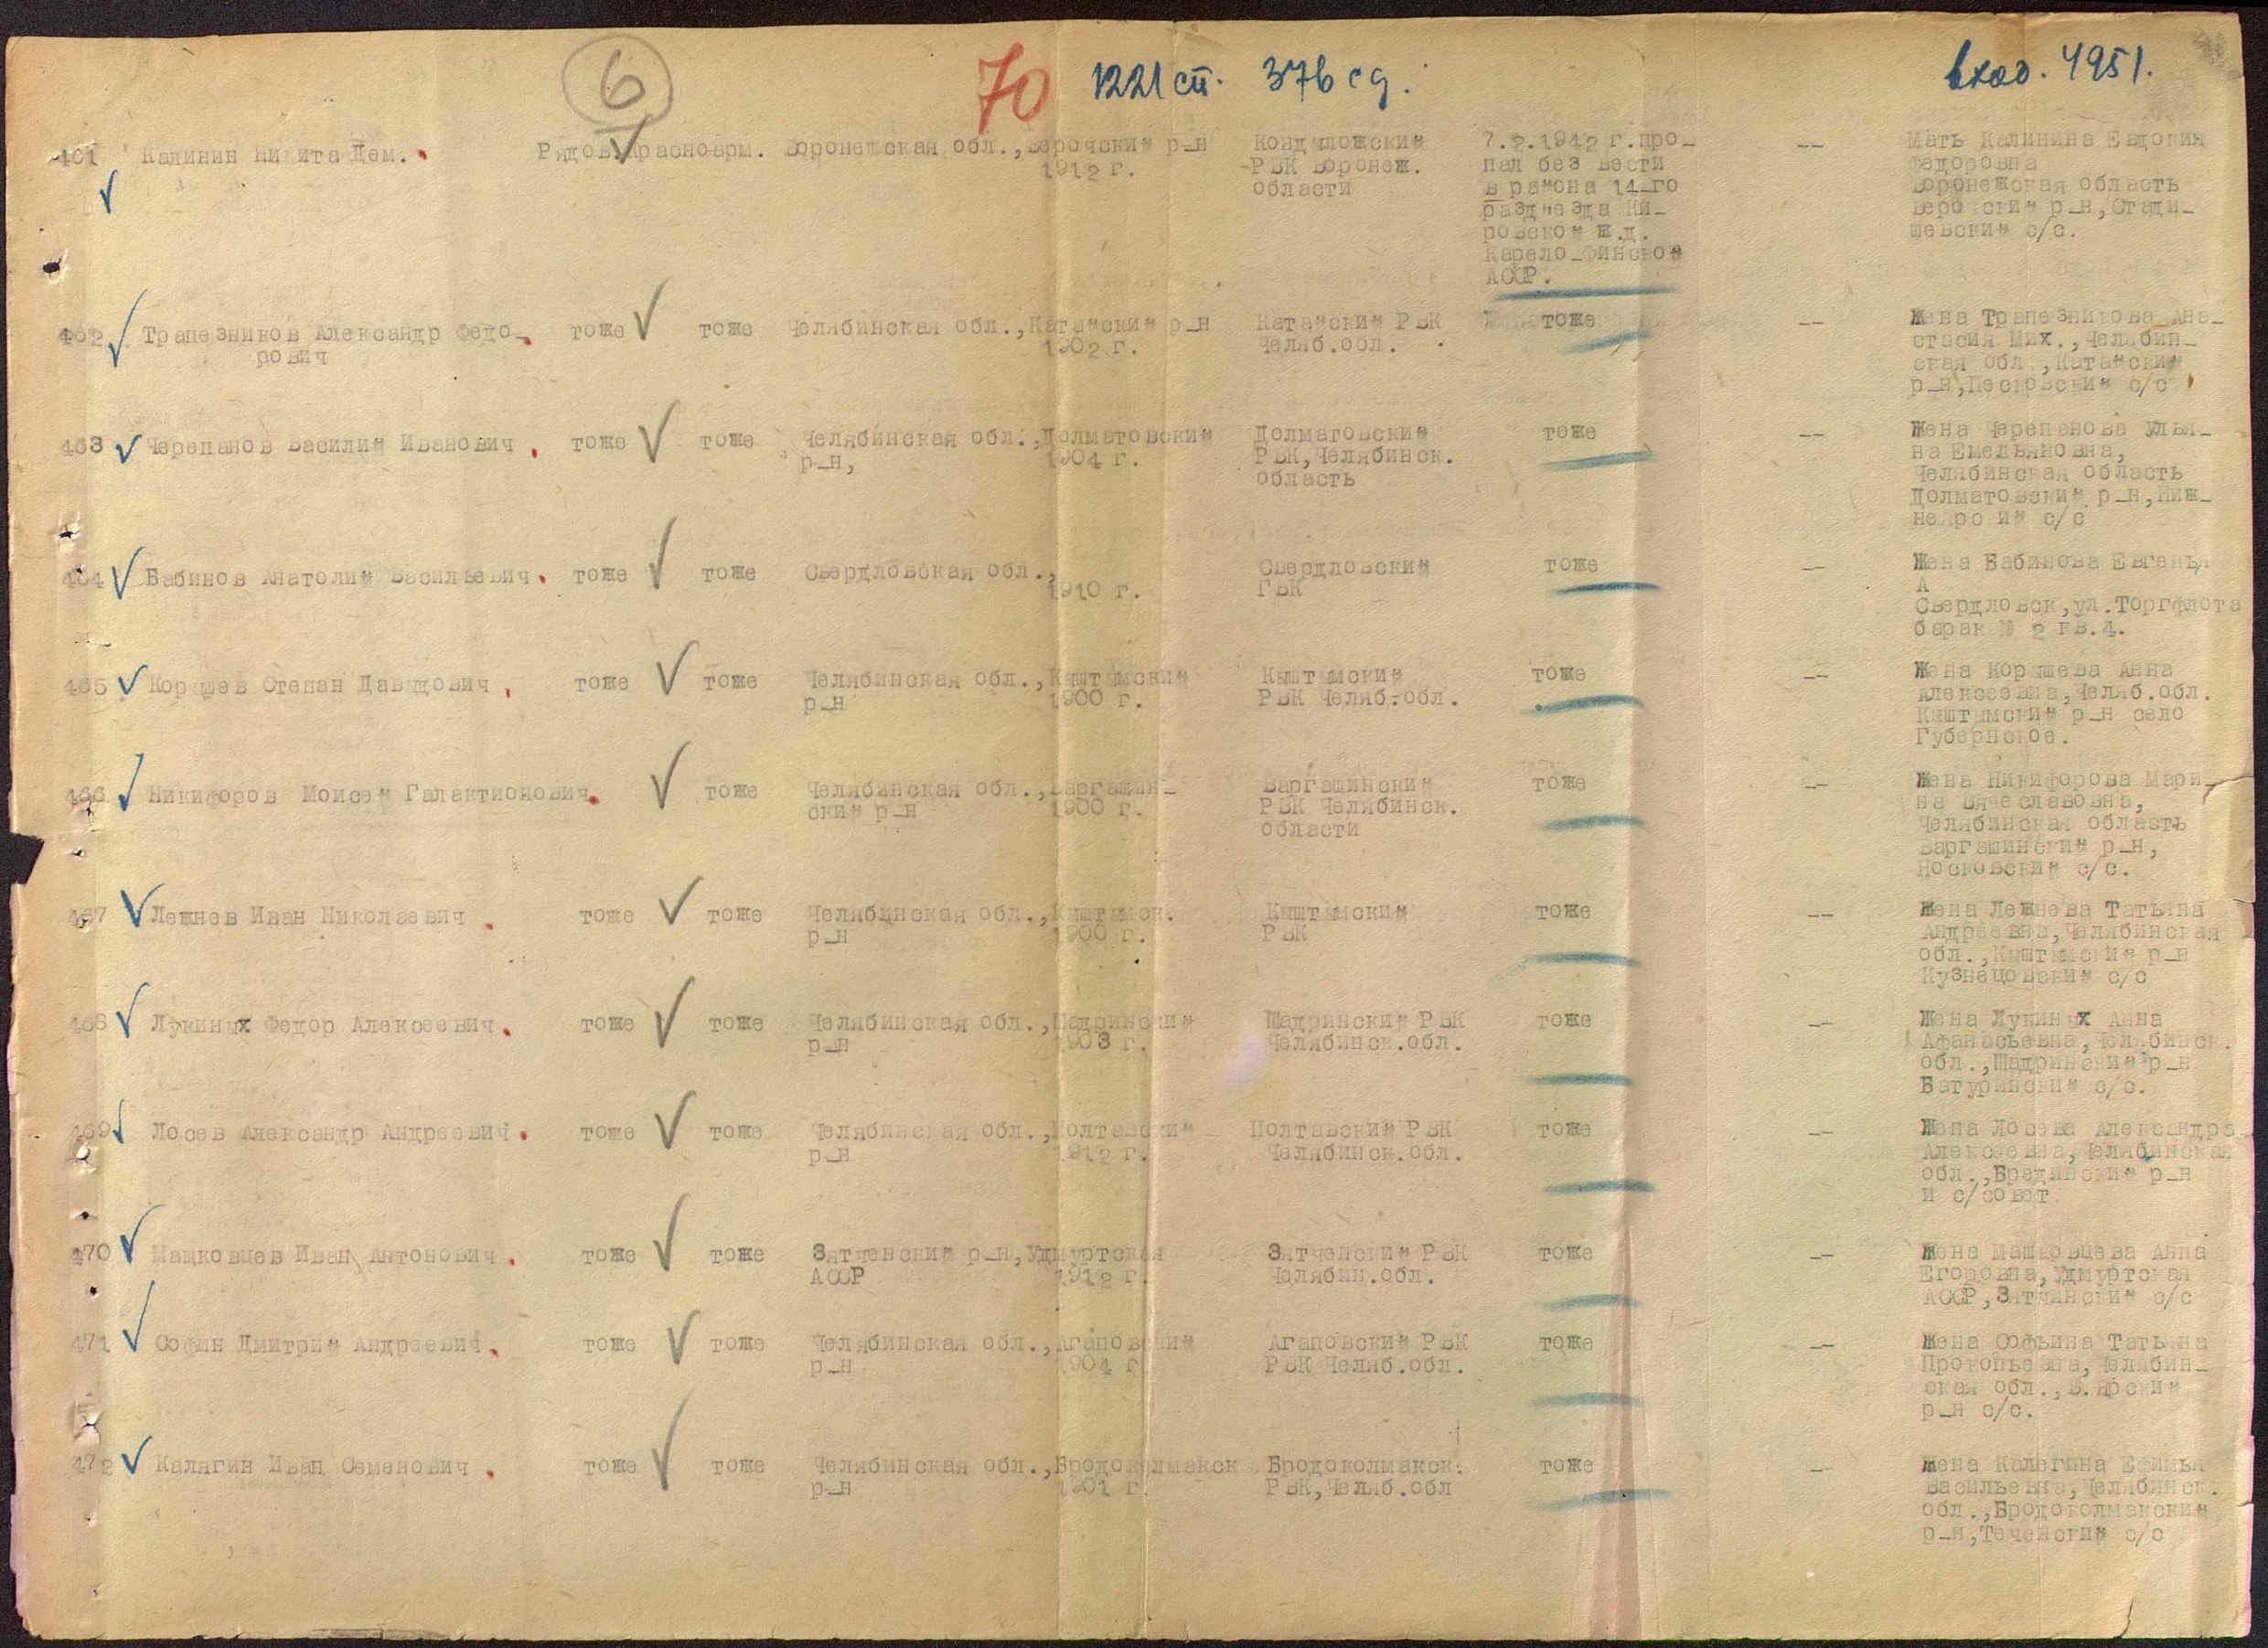 6
70 1221 сп. 376 сд.
вход. 4951.
461 Калинин Никита Дем. Рядов. Красноарм. Воронежская обл., р-н РВК Воронеж. 7.2.1942 г. про- -- Мать Калинина Евдокия
1912 г. области пал без вести Федоровна
в района 14-го Воронежская область
раздъезда Ки- р-н,
ровской ж.д. с/с.
Карело-Финской
АССР.
462 Трапезников Александр Федо- тоже тоже Челябинская обл., Катайский р-н Катайский РВК тоже -- Жена Трапезникова Ана-
рович 1902 г. Челяб.обл. стасия Мих., Челябин-
ская обл., Катайский
р-н, Песковский с/с
463 Черепанов Василий Иванович тоже тоже Челябинская обл., Долматовский Долматовский тоже -- Жена Черепанова Улья-
р-н, 1904 г. РВК, Челябинск. на Емельяновна,
область Челябинская область
Долматовский р-н, Ниж-
с/с
464 Бабинов Анатолий Васильевич тоже тоже Свердловская обл., Свердловский тоже -- Жена Бабинова Евгенья
1910 г. ГВК А
Свердловск, ул. Торгфлота
барак № 2 кв.4.
465 Корышев Степан Давыдович тоже тоже Челябинская обл., Кыштымский Кыштымский тоже -- Жена Корышева Анна
р-н 1900 г. РВК Челяб.обл. Алексеевна, Челяб.обл.
Кыштымский р-н село
Губернское.
466 Никифоров Моисей Галактионович тоже Челябинская обл., Варгашин- Варгашинский тоже -- Жена Никифорова Мари-
ский р-н 1900 г. РВК Челябинск. на Вячеславовна,
области Челябинская область
Варгашинский р-н,
Носковский с/с.
467 Лежнев Иван Николаевич тоже тоже Челябинская обл., Кыштымск. Кыштымский тоже -- Жена Лежнева Татьяна
р-н 1900 г. РВК Андреевна, Челябинская
обл., Кыштымский р-н
Кузнецовский с/с
468 Лукиных Федор Алексеевич тоже тоже Челябинская обл., Шадринский Шадринский РВК тоже -- Жена Лукиных Анна
р-н 1903 г. Челябинск.обл. Афанасьевна, Челябинск.
обл., Шадринский р-н
Батуринский с/с.
469 Лосев Александр Андреевич тоже тоже Челябинская обл., Полтавский Полтавский РВК тоже -- Жена Лосева Александра
р-н 1912 г. Челябинск.обл. Алексеевна, Челябинская
обл., Брединский р-н
и с/совет.
470 Машковцев Иван Антонович тоже тоже Зятценский р-н, Удмуртская Зятченский РВК тоже -- Жена Машковцева Анна
АССР 1912 г. Челябин.обл. Егоровна, Удмуртская
АССР, Зятчинский с/с
471 Софьин Дмитрий Андреевич тоже тоже Челябинская обл., Агаповский Агаповский РВК тоже -- Жена Софьина Татьяна
р-н 1904 г. РВК Челяб.обл. Прокопьевна, Челябин-
ская обл.,
р-н с/с.
472 Калягин Иван Семенович тоже тоже Челябинская обл., Бродоколмакск Бродоколмакск. тоже -- Жена Калягина Ефимья
р-н 1901 г. РВК, Челяб.обл Васильевна, Челябинск.
обл., Бродоколмакский
р-н, Теченский с/с